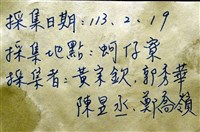 採集日期:113.2.19
採集地點:蚵仔寮
採集者:黃宗欽.郭秀華
陳昱丞.鄭喬嶺